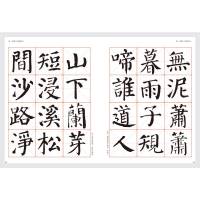 山下蘭芽
短浸溪松
間沙路淨
無泥蕭蕭
暮雨子規
啼誰道人